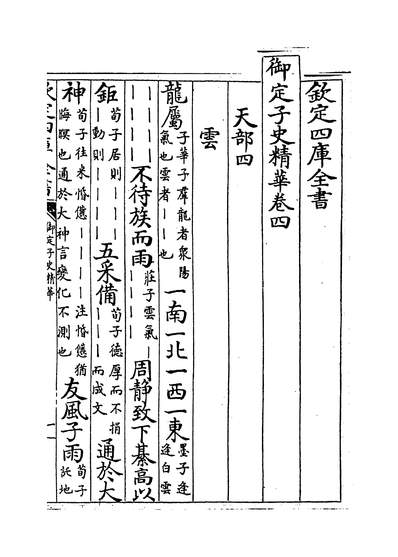 欽定四庫全書
御定子史精華卷四
天部四
雲
龍屬子華子羣龍者衆陽氣也雲者——也一南一北一西一東墨子逢逢白雲
————————不待族而雨莊子雲氣—————周靜致下綦高以
鉅荀子居則————動則————五采備荀子德厚而不捐———而成文通於大
神荀子往來惛憊————注惛憊猶晦暝也通於大神言變化不測也友風子雨荀子託地
御定子史精華